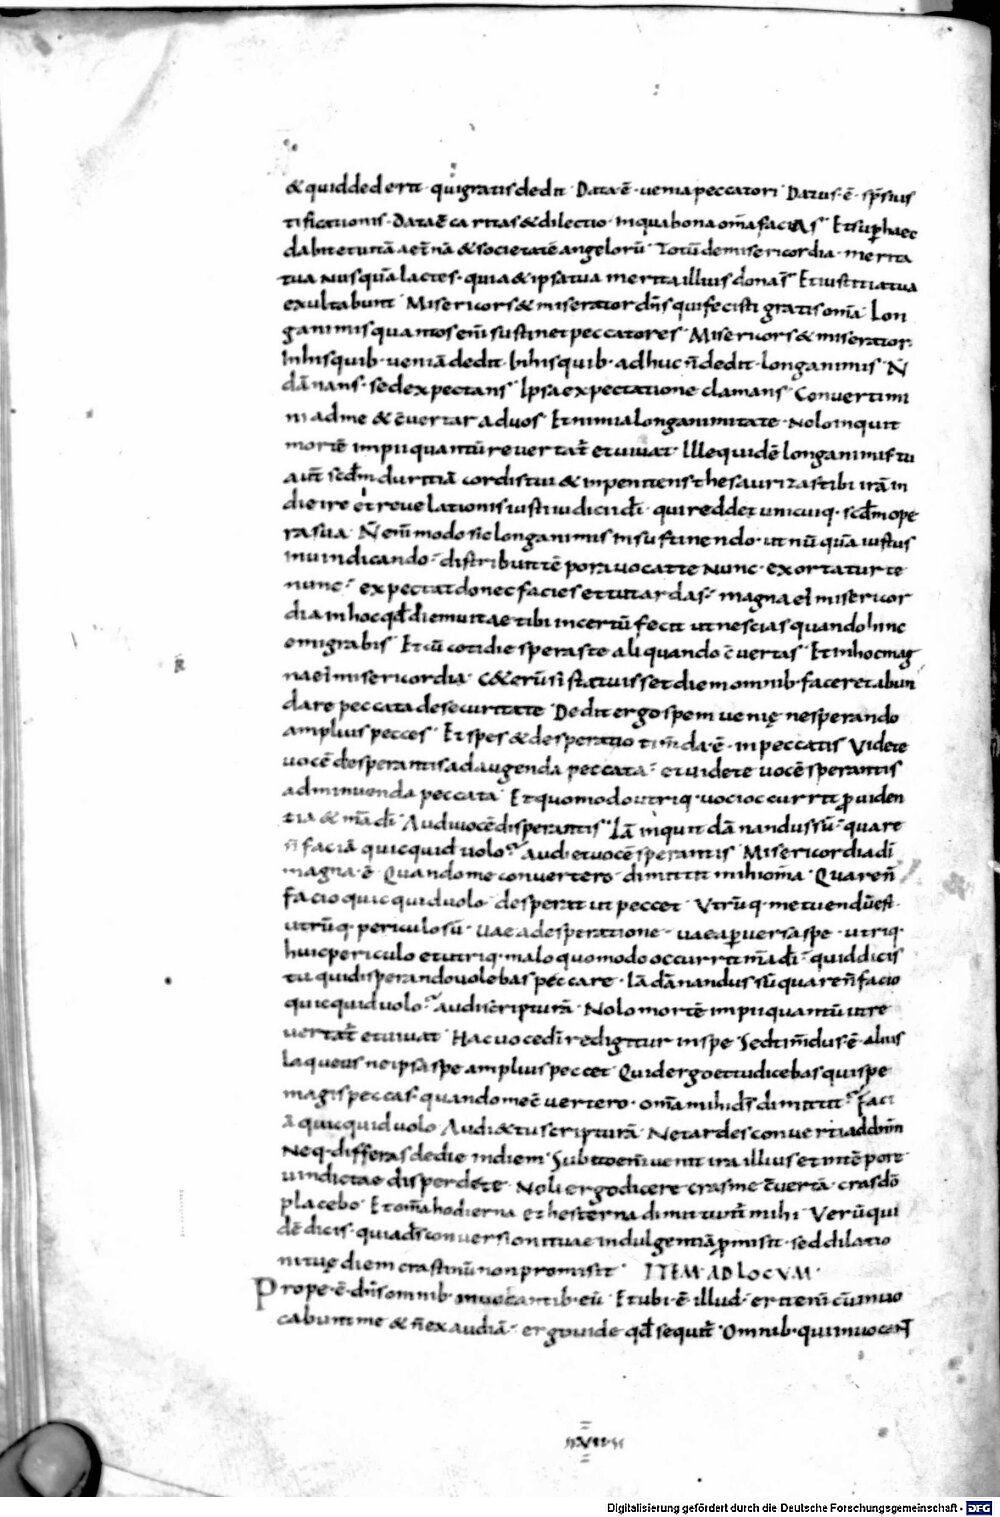 & quid dederit · qui gratis dedit · Data ē · uenia peccatori · Datus · ē · sp̄s ius
tificationis · Data ē caritas & dilectio · in qua bona om̄a facias · Et sup haec
dabit et uitā aet̄nā & societatē angelorū · Totū de misericordia · merita
tua nusquā iactes · quia & ipsa tua merita illius dona s̄ · Et iustitia tua
exultabunt · Misericors & miserator dn̄s qui fecisti gratis om̄a · Lon
ganimis quantos em̄ sustinet peccatores · Misericors & miserator ·
In his quib · ueniā dedit · In his quib · adhuc n̄ dedit · longanimis · N̄
dānans · sed expectans · Ipsa expectatione clamans · Convertimi
ni ad me & c̄uertar ad uos · Et nimia longanimitate · Nolo inquit
mortē impii quantū reuertat̄ et uiuat · Ille quidē longanimis tu
aut̄ scd̄m duritiā cordis tui & inpenitens thesaurizas tibi irā in
die ire et reuelationis iusti iudicii dī · qui reddet unicuiq · scd̄m ope
ra sua · N̄ em̄ modo sic longanimis in sustinendo · ut nū quā iustus
in uindicando · distribuit tēpora uocat te nunc · exortatur te
nunc · expectat donec facies et tu tardas · magna ei misericor
dia in hoc qd̄ diem uitae tibi incertū fecit ut nescias quando hinc
emigrabis · Et cū cotidie speras te aliquando c̄uertas · Et in hoc mag
na ei misericordia · C&erū si statuisset diem omnib · faceret abun
dare peccata de securitate · Dedit ergo spem ueniȩ ne sperando
amplius pecces · Et spes & desperatio tim̄da · ē · in peccatis Videte
uocē desperantis ad augenda peccata · et uidete uocē sperantis
ad minuenda peccata · Et quomodo utriq · uoci occurrit ꝓuiden
tia & m̄a dī · Audi uocē disperantis · Iā inquit dānandus sū · quare
n̄ faciā quicquid uolo · Audi et uocē sperantis · Misericordia dī
magna · ē · Quando me convertero · dimittit mihi om̄a · Quare n̄
facio quicquid uolo · desperat ut peccet · Vtrūq · metuendū est ·
utrūq · periculosū · Uae a desperatione · uae a ꝑuersa spe · utriq ·
huic periculo et utriq · malo quomodo occurrit m̄a dī · quid dicis
tu qui disperando uolebas peccare · Iā dānandus sū quare n̄ facio
quicquid uolo · audi scripturā · Nolo mortē impii quantū ut re
vertat̄ et uiuat · Hac uoce dī redigitur in spe · Sed tim̄dus · ē · alius
laqueus ne ipsa spe amplius peccet · Quid ergo et tu dicebas qui spe
magis peccas · quando me c̄uertero · om̄a mihi dn̄s dimittit · faci
ā quicquid uolo · Audi & tu scripturā · Ne tardes converti ad dn̄m
Neq · differas de die in diem · Subito em̄ uenit ira illius et in tēpore
uindictae disperdet te · Noli ergo dicere cras me c̄uertā · cras dō
placebo · Et om̄a hodierna et hesterna dimittunt̄ mihi · Verū qui
dē dicis · quia ds̄ conversioni tuae indulgentiā ꝓmisit · sed dilatio
ni tuȩ diem crastinū non promisit · ITEM AD LOCVM ·
Prope · ē · dn̄s omnib · inuocantib · eū · Et ubi · ē · illud · erit em̄ cū inuo
cabunt me & n̄ exaudiā · ergo uide qd̄ sequit̄ · Omnib · qui inuocant
·VII·
R
Digitalisierung gefördert durch die Deutsche Forschungsgemeinschaft - DFG